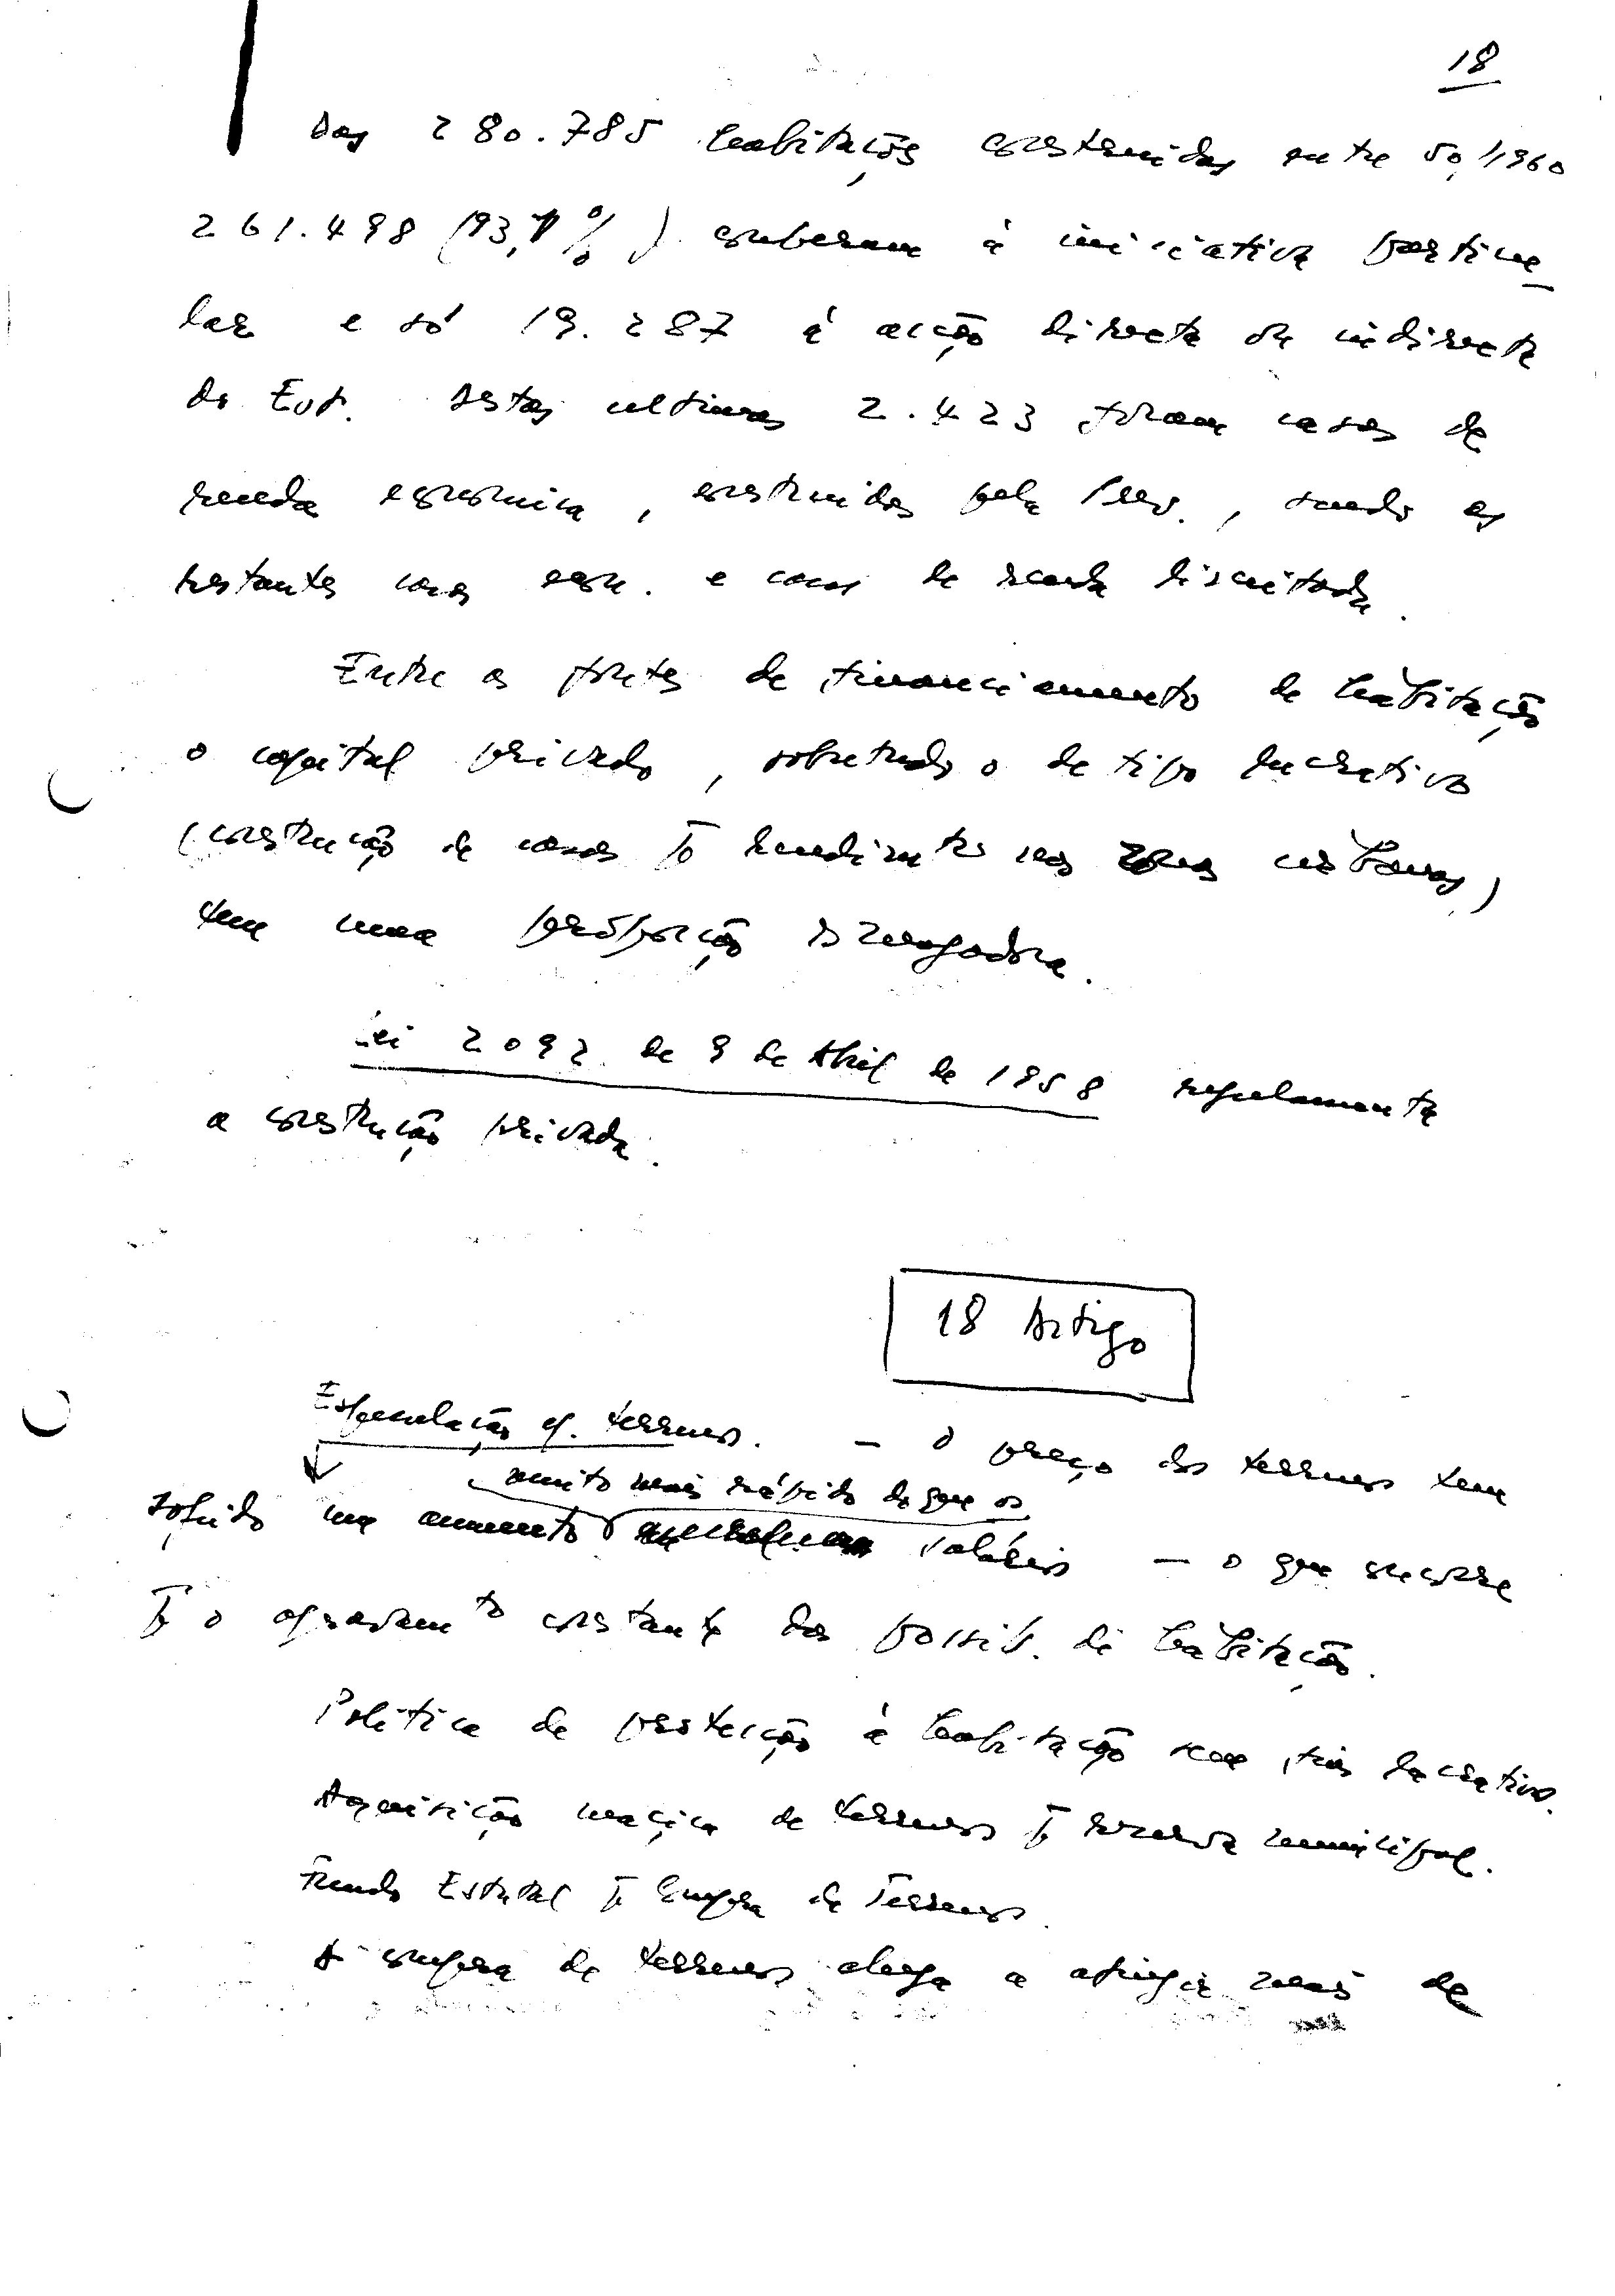 18
Das 280.785 habitações construidas entre 50/1960
261.498 (93,1%) couberam à iniciativa particu_
lar e só 19.287 à acção directa ou indirecta
do Est. Destas ultimas 2.423 foram casas de
renda economica, construidas pela Prev., sendo as
restantes casas econ. e casas de renda limitada.
Entre as fontes de financiamento de habitação
o capital privado, sobretudo o de tipo lucrativo
(construção de casas p rendimento nas zonas urbanas)
tem uma proporção esmagadora.
Lei 2092 de 9 de Abril de 1958 regulamenta
a construção privada.
18 Artigo
Especulação c/. terrenos. – O preço dos terrenos tem
muito mais rápido do que os
sofrido um aumento salários – o que concorre
p o agravamto constante das possib. de habitação.
Politica de protecção à habitação sem fins lucrativos.
Aquisição maciça de terrenos p reserva municipal.
Fundo Estatal p Compra de Terrenos.
A compra de terrenos chega a atingir mais de